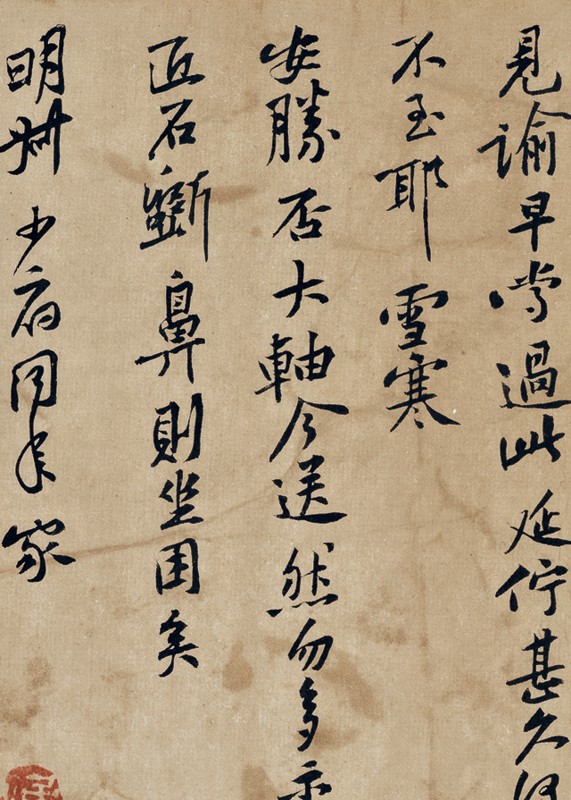 見諭早當過此延佇甚久何
不至耶 雪寒
安勝否大軸今送然勿多示
匠石斲鼻則坐困矣
明州少府同年家